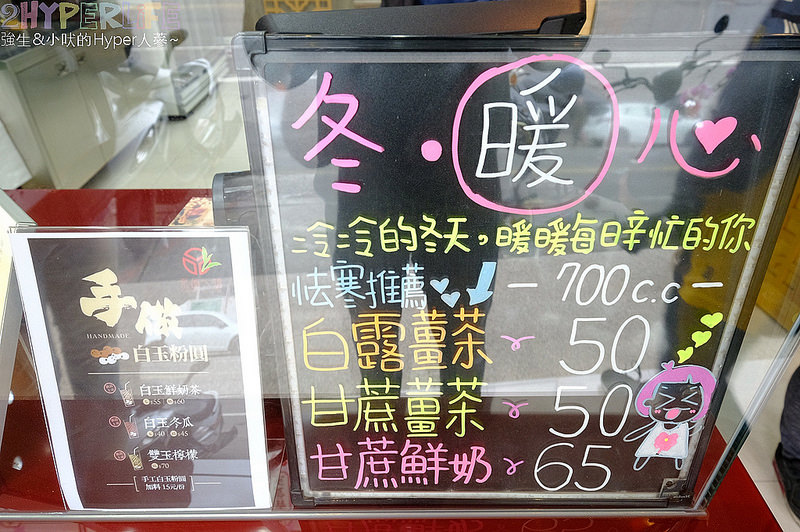 2HYPERLIFE
強生&小吠的Hyper人蔘~
冬·暖心
冷冷的冬天,暖暖每日辛忙的你
怯寒推薦 — 700c.c —
白露薑茶 50
甘蔗薑茶 50
甘蔗鮮奶 65
手做
HANDMADE
白玉粉圓
白玉鮮奶茶
$55 $60
白玉冬瓜
$40 $45
雙玉檸檬
$70
手工白玉粉圓
加料 15元/份